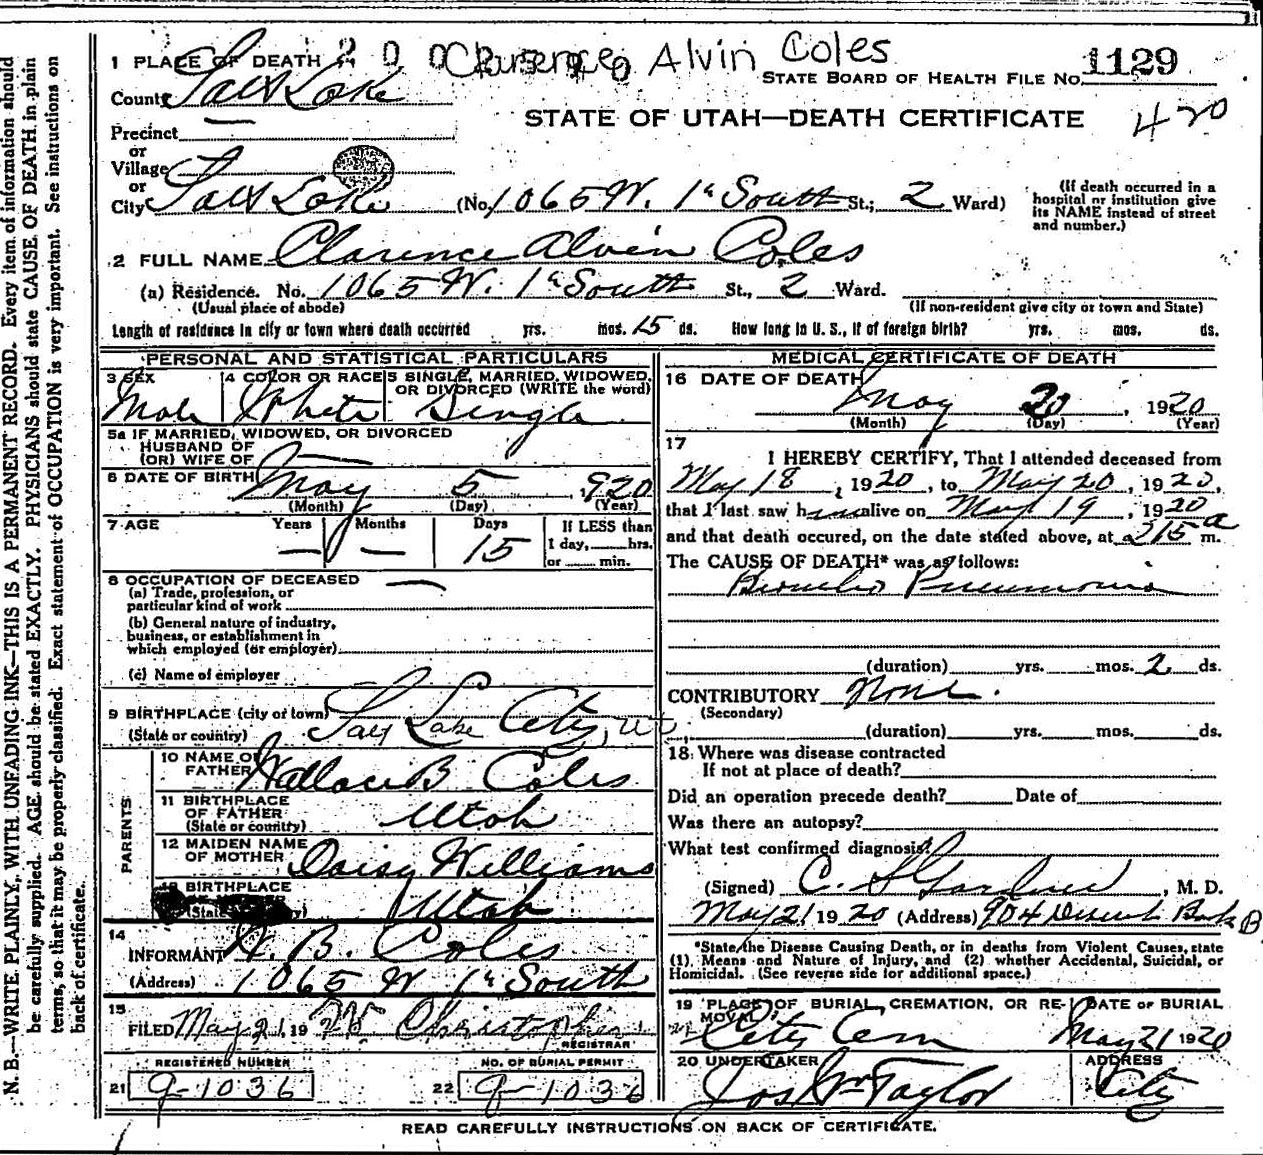 N. B.—WRITE PLAINLY, WITH UNFADING INK—THIS IS A PERMANENT RECORD. Every item of information should
be carefully supplied. AGE should be stated EXACTLY. PHYSICIANS should state CAUSE OF DEATH in plain
terms, so that it may be properly classified. Exact statement of OCCUPATION is very important. See instructions on
back of certificate.
Clarence Alvin Coles
1 PLACE OF DEATH
STATE BOARD OF HEALTH FILE No. 1129
County Salt Lake
STATE OF UTAH—DEATH CERTIFICATE 420
Precinct —
or
Village
or
City Salt Lake (No. 1065 W. 1st South St.; 2 Ward)
(If death occurred in a
hospital or institution give
its NAME instead of street
and number.)
2 FULL NAME Clarence Alvin Coles
(a) Residence. No. 1065 W. 1st South St., 2 Ward.
(Usual place of abode) (If non-resident give city or town and State)
Length of residence in city or town where death occurred yrs. mos. 15 ds. How long in U. S., if of foreign birth? yrs. mos. ds.
PERSONAL AND STATISTICAL PARTICULARS
3 SEX 4 COLOR OR RACE 5 SINGLE, MARRIED, WIDOWED,
OR DIVORCED (WRITE the word)
Male White Single
5a IF MARRIED, WIDOWED, OR DIVORCED
HUSBAND OF
(OR) WIFE OF —
6 DATE OF BIRTH May 5, 920
(Month) (Day) (Year)
7 AGE Years Months Days If LESS than
— — 15 1 day, hrs.
or min.
8 OCCUPATION OF DECEASED —
(a) Trade, profession, or
particular kind of work
(b) General nature of industry,
business, or establishment in
which employed (or employer)
(c) Name of employer
9 BIRTHPLACE (city or town) Salt Lake City, Ut
(State or country)
PARENTS
10 NAME OF
FATHER Wallace B Coles
11 BIRTHPLACE
OF FATHER
(State or country) Utah
12 MAIDEN NAME
OF MOTHER Daisy Williams
BIRTHPLACE
Utah
14
INFORMANT W. B. Coles
(Address) 1065 W 1st South
15
FILED May 21, 19 20 Christopher
REGISTRAR
REGISTERED NUMBER NO. OF BURIAL PERMIT
21 9-1036 22 9-1036
MEDICAL CERTIFICATE OF DEATH
16 DATE OF DEATH
May 20, 1920
(Month) (Day) (Year)
17
I HEREBY CERTIFY, That I attended deceased from
May 18, 1920, to May 20, 1920,
that I last saw him alive on May 19, 1920
and that death occured, on the date stated above, at 215 a m.
The CAUSE OF DEATH* was as follows:
Broncho Pneumonia
(duration) yrs. mos. 2 ds.
CONTRIBUTORY None.
(Secondary)
(duration) yrs. mos. ds.
18 Where was disease contracted
If not at place of death?
Did an operation precede death? Date of
Was there an autopsy?
What test confirmed diagnosis?
(Signed) C. S Gardner, M. D.
May 21 1920 (Address) 904 Deseret Bank B
*State the Disease Causing Death, or in deaths from Violent Causes, state
(1) Means and Nature of Injury, and (2) whether Accidental, Suicidal, or
Homicidal. (See reverse side for additional space.)
19 PLACE OF BURIAL, CREMATION, OR RE-
MOVAL DATE OF BURIAL
City Cem May 21 1920
20 UNDERTAKER ADDRESS
Jos Wm Taylor City
READ CAREFULLY INSTRUCTIONS ON BACK OF CERTIFICATE.